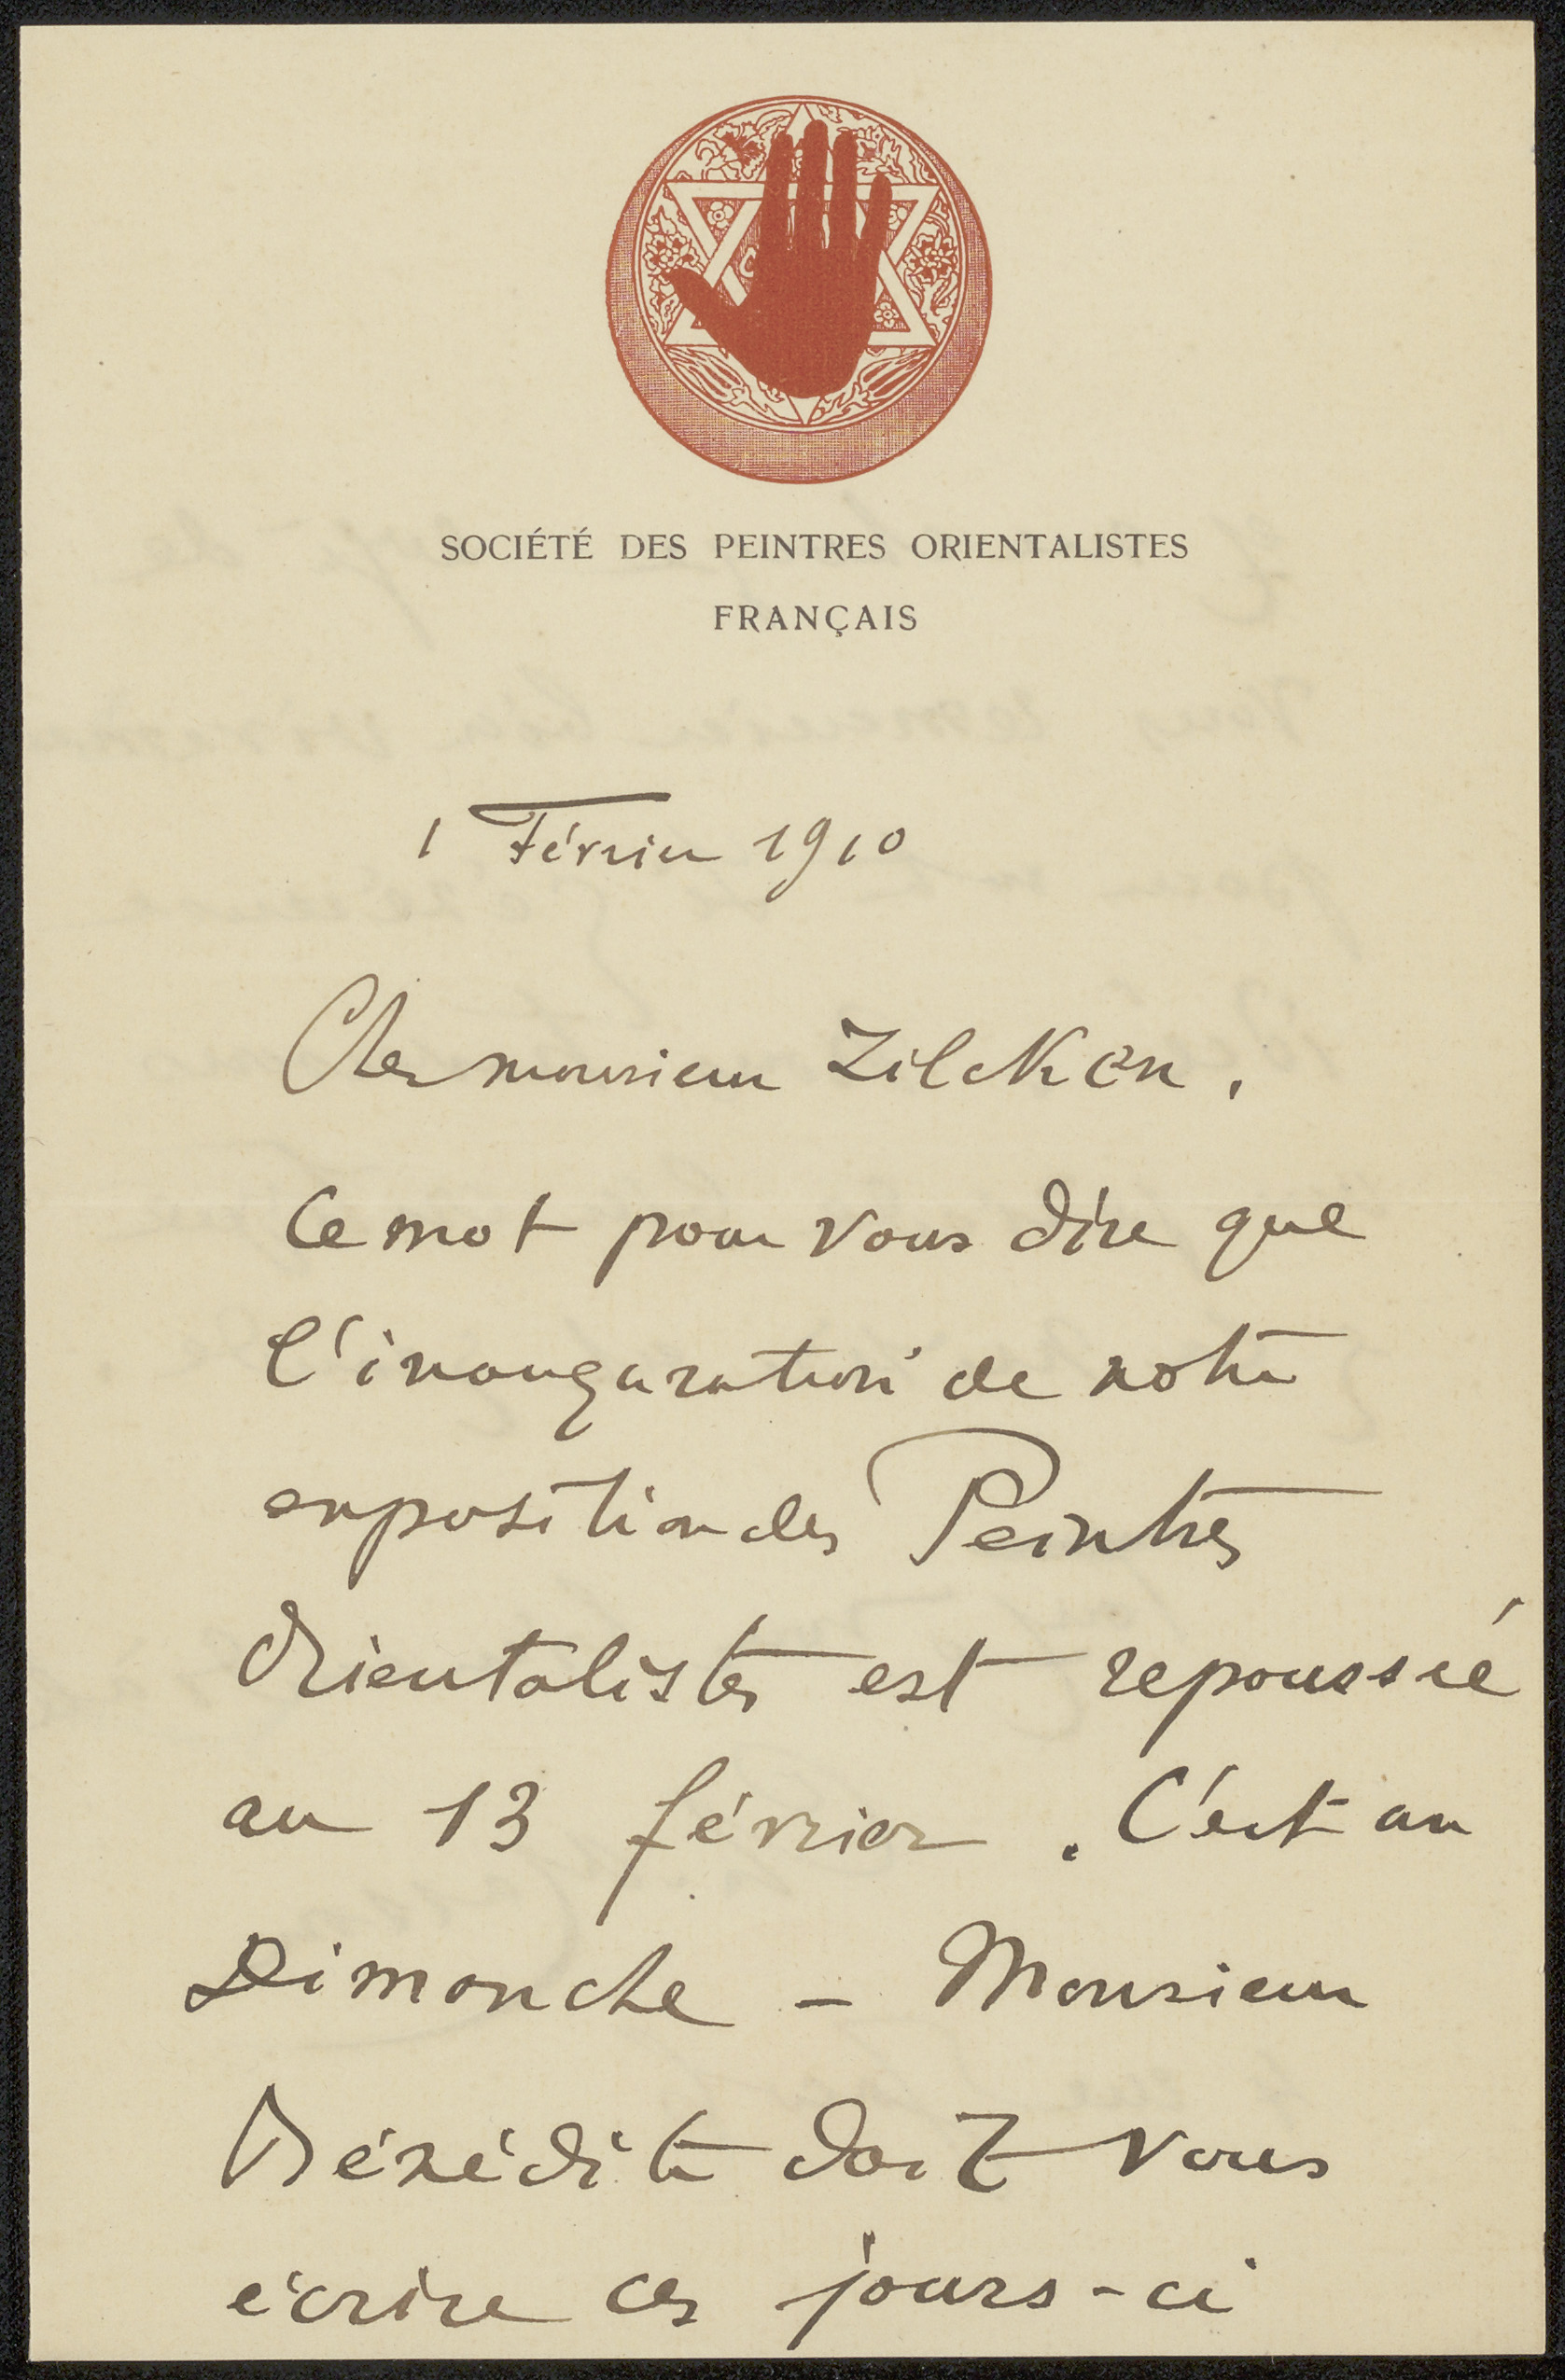 SOCIÉTÉ DES PEINTRES ORIENTALISTES
FRANÇAIS
1 Février 1910
Cher monsieur Zilcken,
Ce mot pour vous dire que
l'inauguration de notre
exposition des Peintres
Orientalistes est repoussée
au 13 février. C'est un
Dimanche – Monsieur
Bénédite doit vous
écrire ces jours-ci